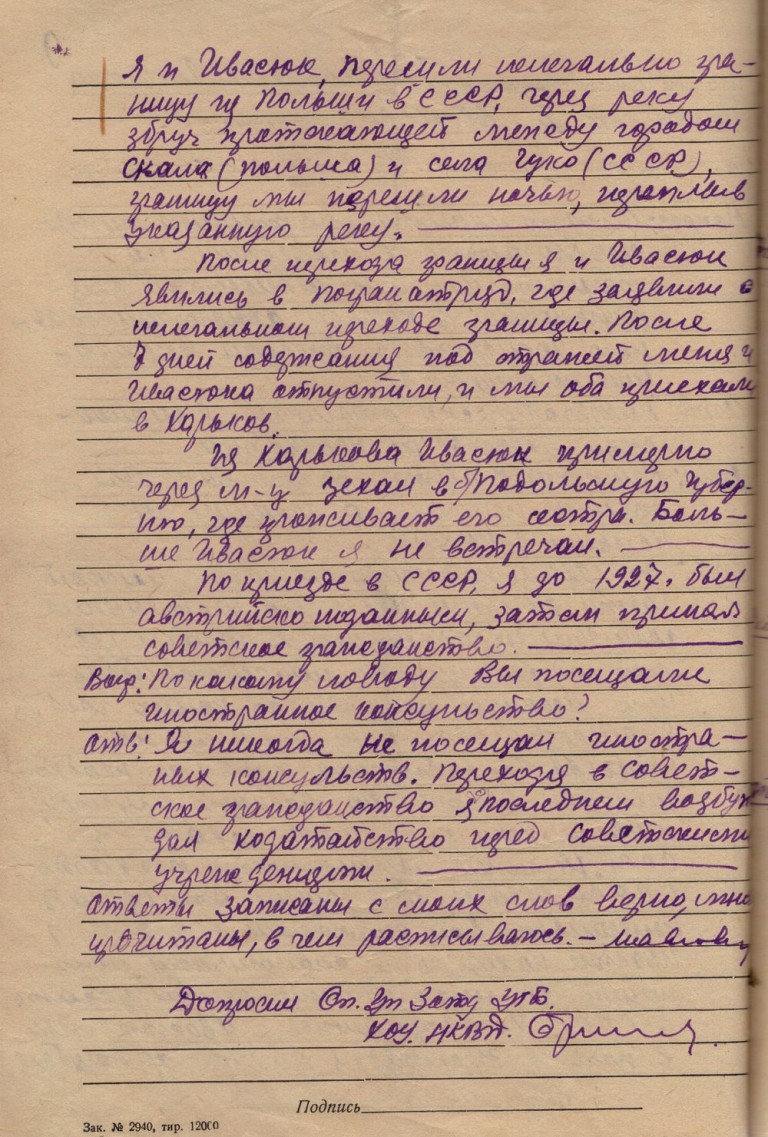 Я и Ивасюк, перешли нелегально гра-
ницу из Польши в СССР, через реку
збруч протекающей между городом
Скала (Польша) и села Гуко (СССР),
границу мы перешли ночью, переплыв
указанную реку.
После перехода границы я и Ивасюк
явились в погранотряд, где заявили о
нелегальном переходе границы. После
7 дней содержания под стражей меня и
Ивасюка отпустили, и мы оба приехали
в Харьков.
Из Харькова Ивасюк примерно
через м-ц уехал в б/Подольскую губер-
нию, где проживает его сестра. Боль-
ше Ивасюк я не встречал.
По приезде в СССР, я до 1927г. был
австрийско поданным, затем принял
советское гражданство.
Вопр: По какому поводу Вы посещали
иностранное консульство?
Отв: Я никогда не посещал иностра-
ных консульств. Переходя в совет-
ское гражданство я последнем возбуж
дал ходатайство перед советскими
учреждениями.
Ответы записаны с моих слов верно, мне
прочитаны, в чем расписываюсь. –
Допросил Оп. Уп 3 отд УГБ.
ХОУ. НКВД.
Подпись
Зак. № 2940, тир. 12000